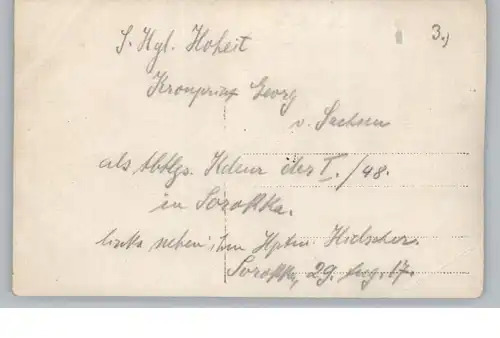 3.)
S. Kgl. Hoheit
Kronprinz Georg
v. Sachsen
als Abtlgs. Kdeur der I./48.
in Soroktka.
links neben ihm Hptm. Hielscher.
Soroktka, 29. Aug. 17.